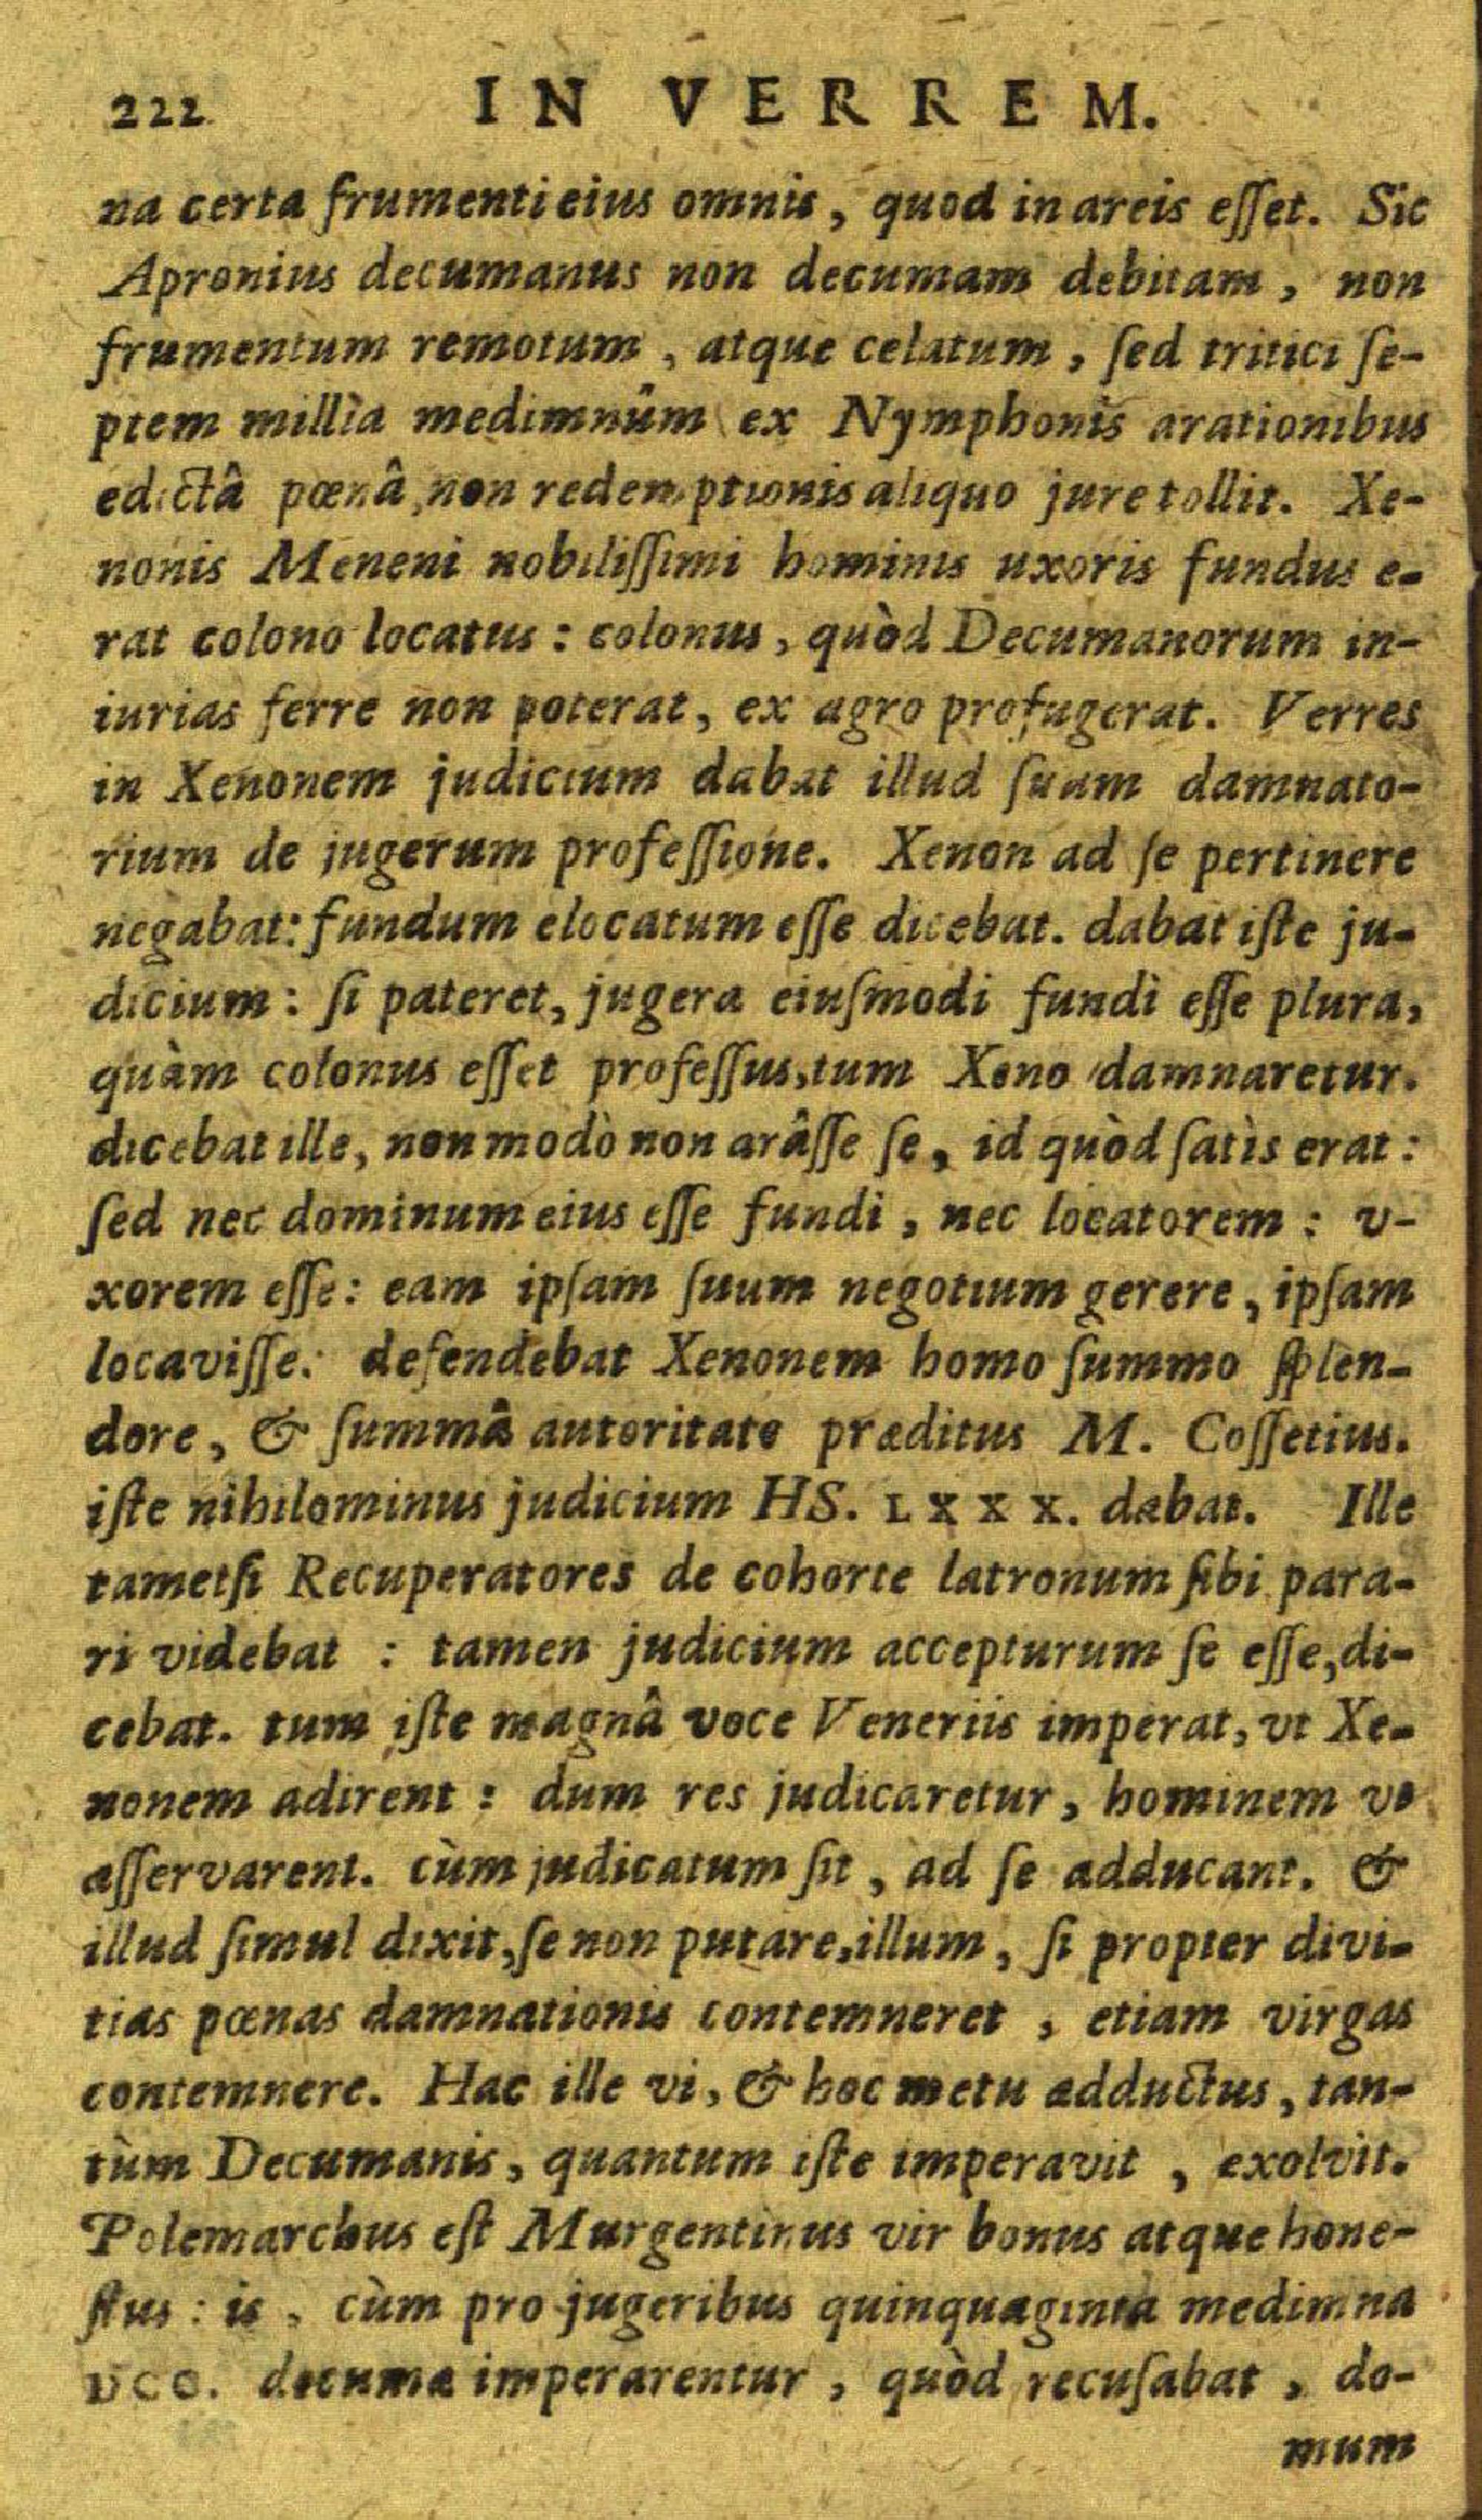 222 IN VERREM.
na certa frumenti eius omnis, quod in areis eſſet. Sic
Apronius decumanus non decumam debitam, non
frumentum remotum, atque celatum, ſed tritici ſe-
ptem millia medimnûm ex Nymphonis arationibus
edictâ pœnâ, non redemptionis aliquo jure tollit. Xe-
nonis Meneni nobiliſſimi hominis uxoris fundus e-
rat colono locatus: colonus, quòd Decumanorum in-
iurias ferre non poterat, ex agro profugerat. Verres
in Xenonem judicium dabat illud ſuum damnato-
rium de jugerum profeſſione. Xenon ad ſe pertinere
negabat: fundum elocatum eſſe dicebat. dabat iſte ju-
dicium: ſi pateret, jugera eiuſmodi fundi eſſe plura,
quàm colonus eſſet profeſſus, tum Xeno damnaretur.
dicebat ille, non modò non arâſſe ſe, id quòd ſatis erat:
ſed nec dominum eius eſſe fundi, nec locatorem: v-
xorem eſſe: eam ipſam ſuum negotium gerere, ipſam
locaviſſe. defendebat Xenonem homo ſummo ſplen-
dore, & ſummâ autoritate præditus M. Coſſetius.
iſte nihilominus judicium HS. LXXX. dabat. Ille
tametſi Recuperatores de cohorte latronum ſibi para-
ri videbat: tamen judicium accepturum ſe eſſe, di-
cebat. tum iſte magnâ voce Veneriis imperat, vt Xe-
nonem adirent: dum res judicaretur, hominem vt
aſſervarent. cùm judicatum ſit, ad ſe adducant. &
illud ſimul dixit, ſe non putare, illum, ſi propter divi-
tias pœnas damnationis contemneret, etiam virgas
contemnere. Hac ille vi, & hoc metu adductus, tan-
tùm Decumanis, quantum iſte imperavit, exolvit.
Polemarchus eſt Murgentinus vir bonus atque hone-
ſtus: is, cùm pro jugeribus quinquaginta medimna
decuma imperarentur, quòd recuſabat, do-
mum